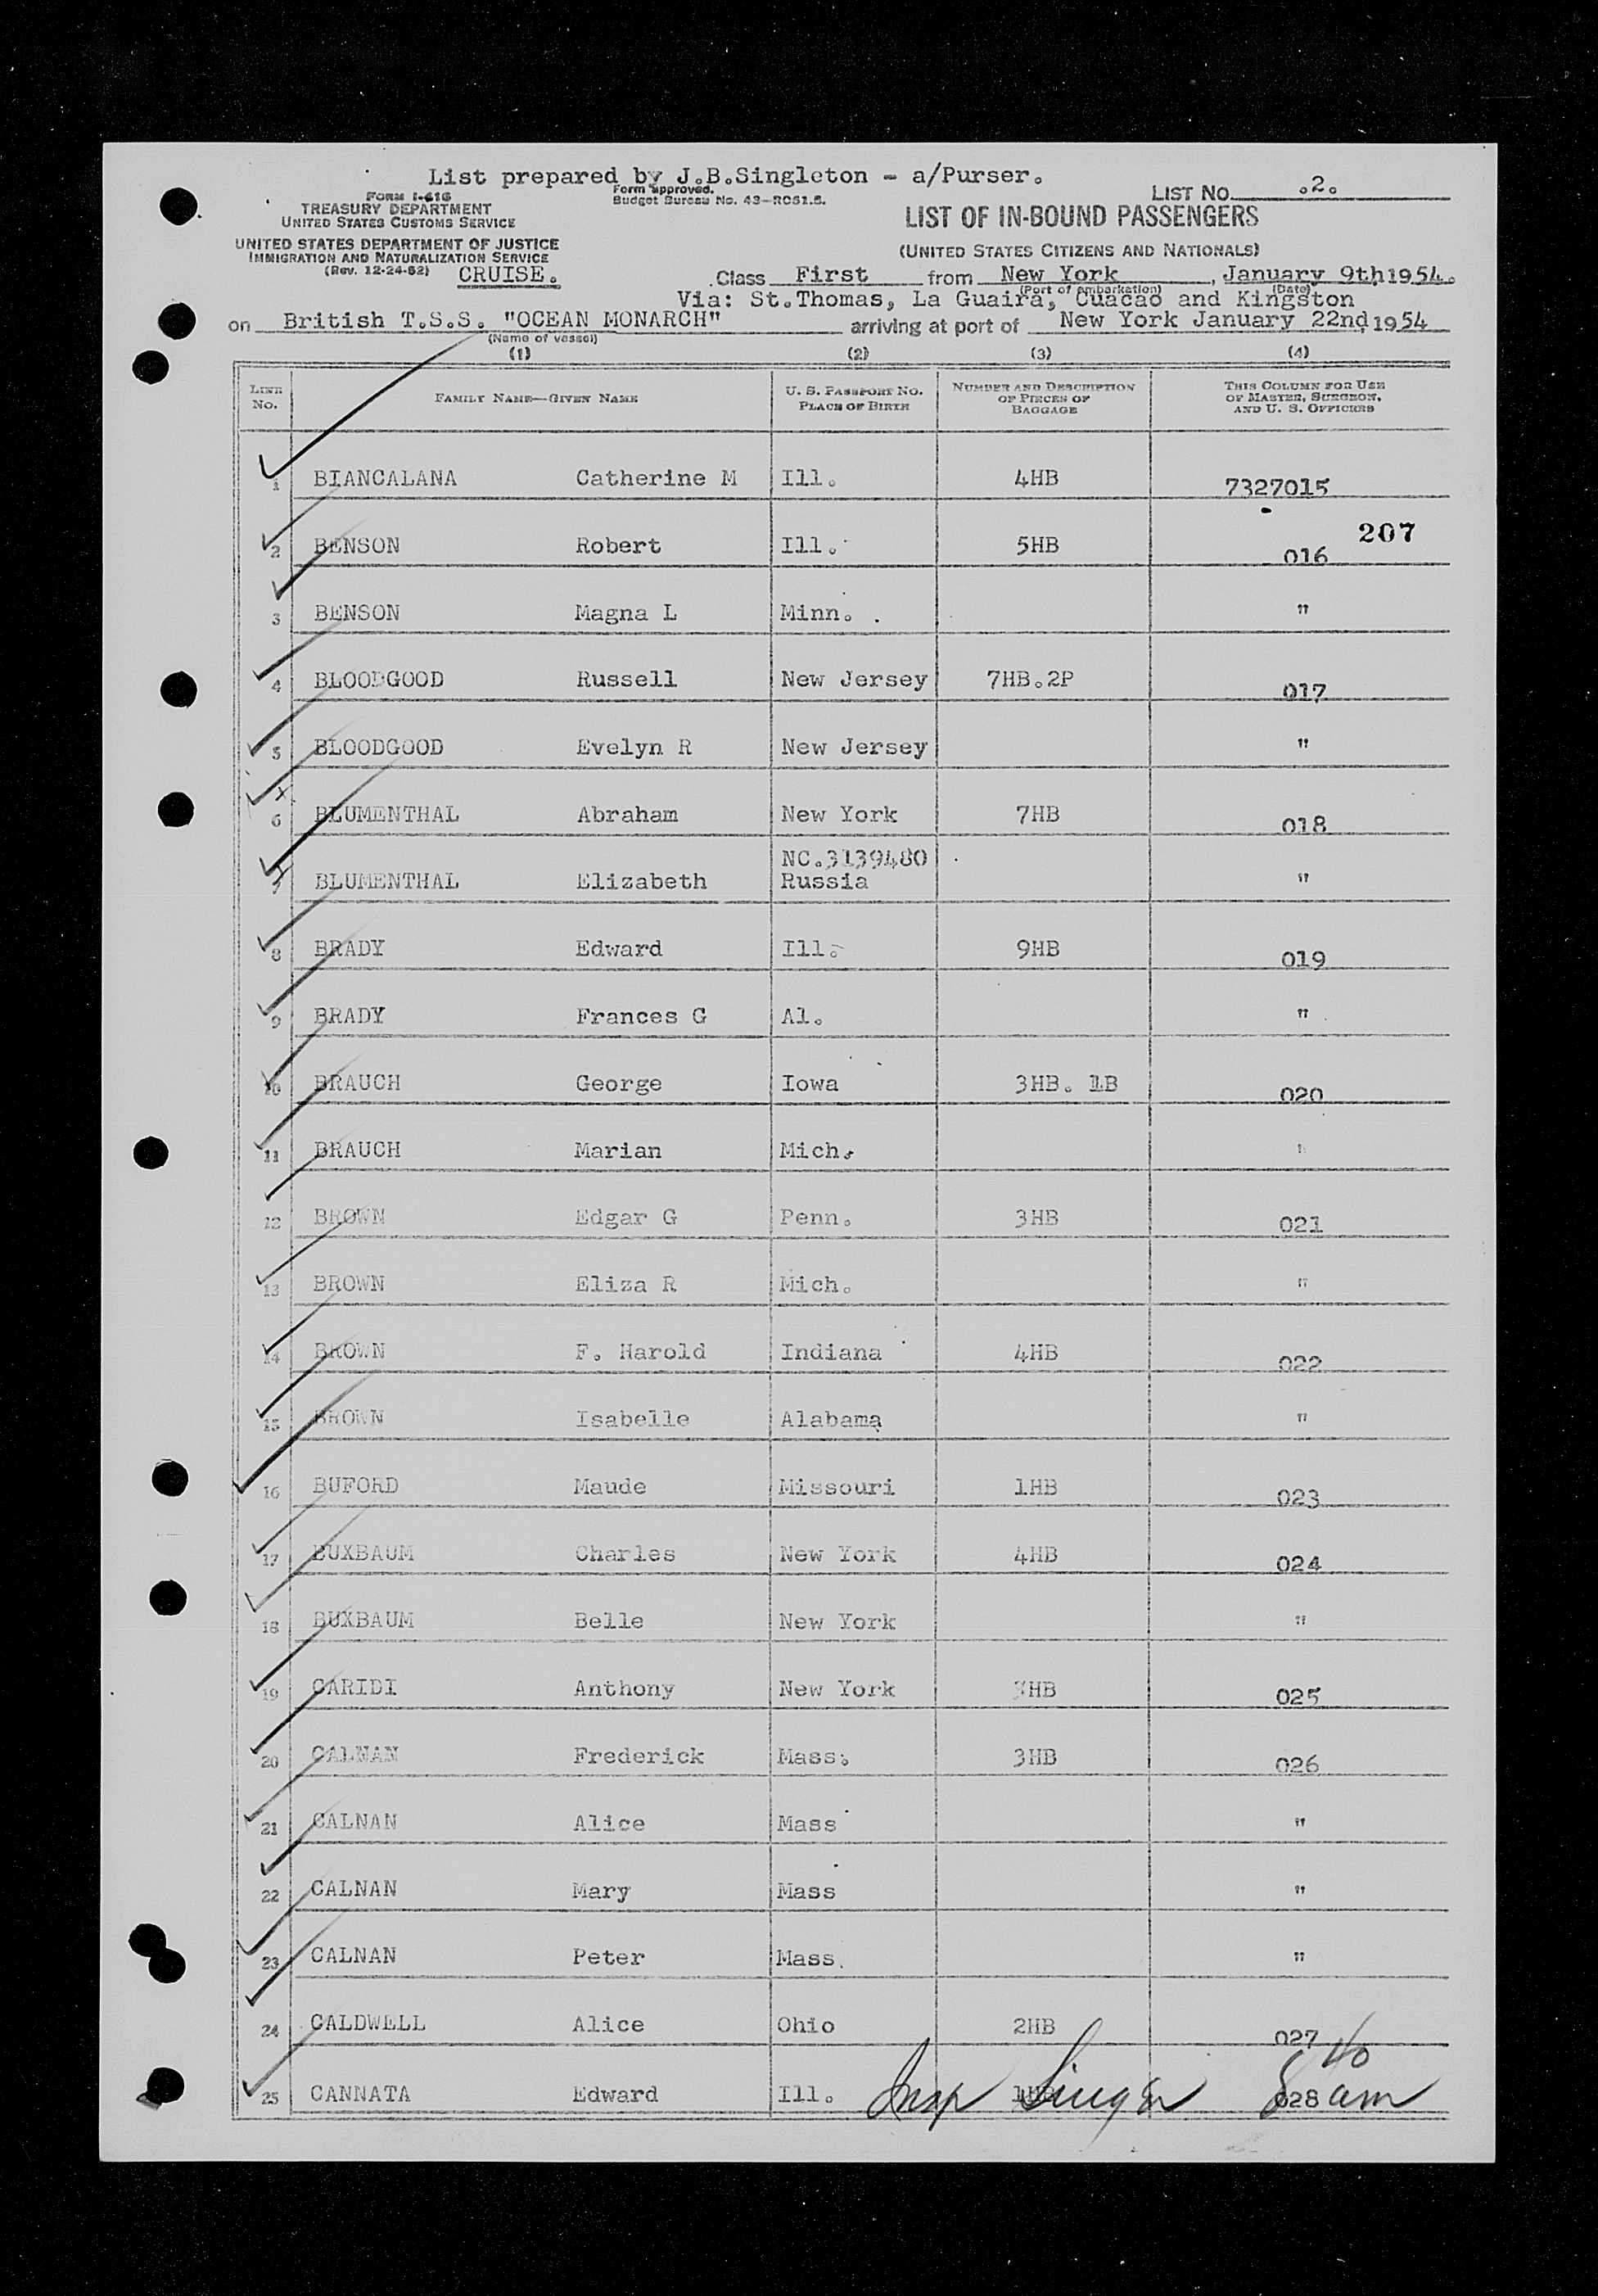 List prepared by J.B.Singleton - a/Purser.
Form I-416
TREASURY DEPARTMENT
UNITED STATES CUSTOMS SERVICE
UNITED STATES DEPARTMENT OF JUSTICE
IMMIGRATION AND NATURALIZATION SERVICE
(Rev. 12-24-52) CRUISE.
Form approved.
Budget Bureau No. 43-R051.5.
LIST NO. .2.
LIST OF IN-BOUND PASSENGERS
(UNITED STATES CITIZENS AND NATIONALS)
Class First from New York, January 9th 1954.
(Port of embarkation) (Date)
Via: St.Thomas, La Guaira, Cuacao and Kingston
on British T.S.S. "OCEAN MONARCH" arriving at port of New York January 22nd, 1954
(Name of vessel)
(1) (2) (3) (4)
LINE NO. FAMILY NAME—GIVEN NAME U. S. PASSPORT NO. PLACE OF BIRTH NUMBER AND DESCRIPTION OF PIECES OF BAGGAGE THIS COLUMN FOR USE OF MASTER, SURGEON, AND U. S. OFFICERS
1 BIANCALANA Catherine M Ill. 4HB 7327015
207
2 BENSON Robert Ill. 5HB 016
3 BENSON Magna L Minn. "
4 BLOODGOOD Russell New Jersey 7HB.2P 017
5 BLOODGOOD Evelyn R New Jersey "
6 BLUMENTHAL Abraham New York 7HB 018
NC.3139480
7 BLUMENTHAL Elizabeth Russia "
8 BRADY Edward Ill. 9HB 019
9 BRADY Frances G Al. "
10 BRAUCH George Iowa 3HB. 1B 020
11 BRAUCH Marian Mich. "
12 BROWN Edgar G Penn. 3HB 021
13 BROWN Eliza R Mich. "
14 BROWN F. Harold Indiana 4HB 022
15 BROWN Isabelle Alabama "
16 BUFORD Maude Missouri 1HB 023
17 BUXBAUM Charles New York 4HB 024
18 BUXBAUM Belle New York "
19 CARIDI Anthony New York 025
20 CALNAN Frederick Mass. 3HB 026
21 CALNAN Alice Mass "
22 CALNAN Mary Mass "
23 CALNAN Peter Mass. "
24 CALDWELL Alice Ohio 2HB 027
25 CANNATA Edward Ill. 1HB 028
Insp Singer 8 40 am